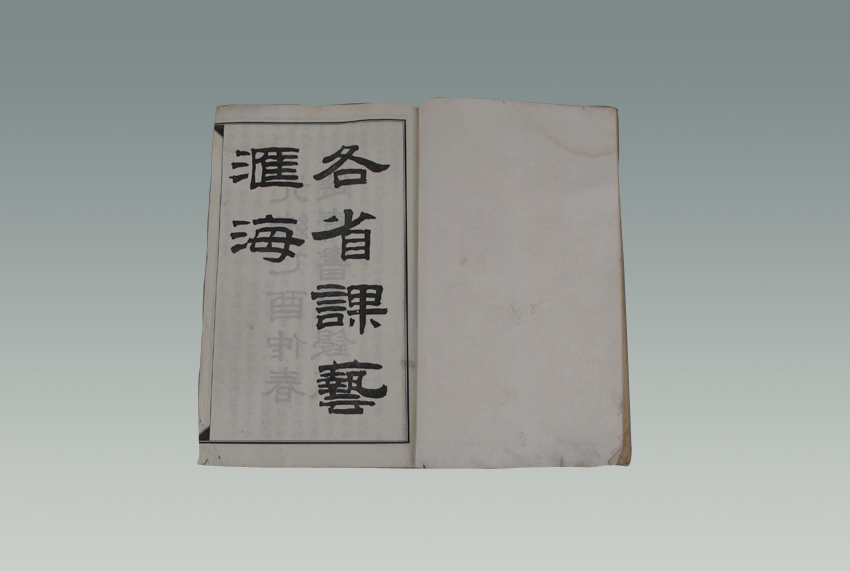 各省課藝
滙海